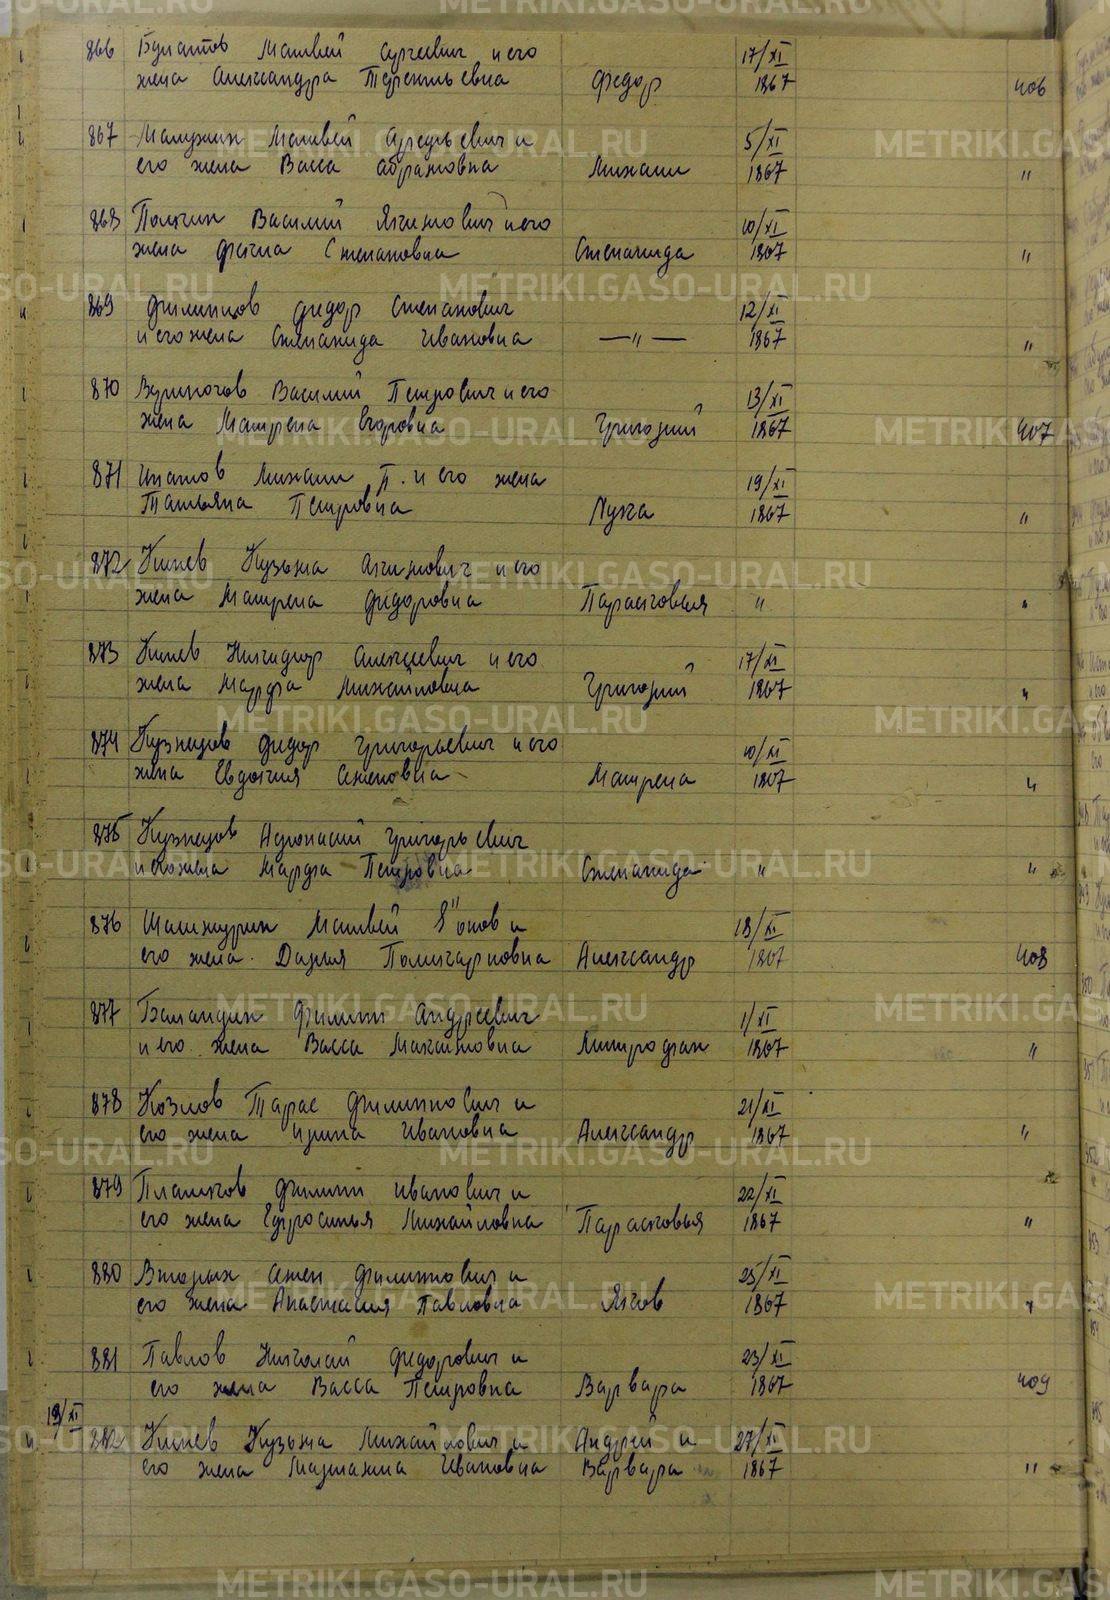 866 Булатов Матвей Сергеевич и его
жена Александра Терентьевна Федор 17/XI 1867 406
867 Матвей и
его жена Васса Абрамовна Михаил 5/XI 1867 "
868 Василий Якимович и его
жена Степановна Степанида 10/XI 1867 "
869 Филиппов Федор Степанович
и его жена Степанида Ивановна — " — 12/XI 1867 "
870 Василий Петрович и его
жена Матрена Егоровна Григорий 13/XI 1867 407
871 Ипатов Михаил П. и его жена
Татьяна Петровна Лука 19/XI 1867 "
872 Кузьма Акимович и его
жена Матрена Федоровна Парасковья " "
873 Никандр Алексеевич и его
жена Марфа Михайловна Григорий 17/XI 1867 "
874 Кузнецов Федор Григорьевич и его
жена Евдокия Семеновна Матрена 10/XI 1867 "
875 Кузнецов Афонасий Григорьевич
и его жена Марфа Петровна Степанида " "
876 Матвей и
его жена Дария Поликарповна Александр 18/XI 1867 408
877 Баландин Филипп Андреевич
и его жена Васса Максимовна Митрофан 1/XI 1867 "
878 Козлов Тарас Филиппович и
его жена Ирина Ивановна Александр 21/XI 1867 "
879 Плашков Филипп Иванович и
его жена Ефросинья Михайловна Парасковья 22/XI 1867 "
880 Вторых Семен Филиппович и
его жена Анастасия Павловна Яков 25/XI 1867 "
881 Павлов Николай Федорович и
его жена Васса Петровна Варвара 23/XI 1867 409
19/XI
882 Кузьма Михайлович и Андрей и 27/XI
его жена Марианна Ивановна Варвара 1867 "
METRIKI.GASO-URAL.RU